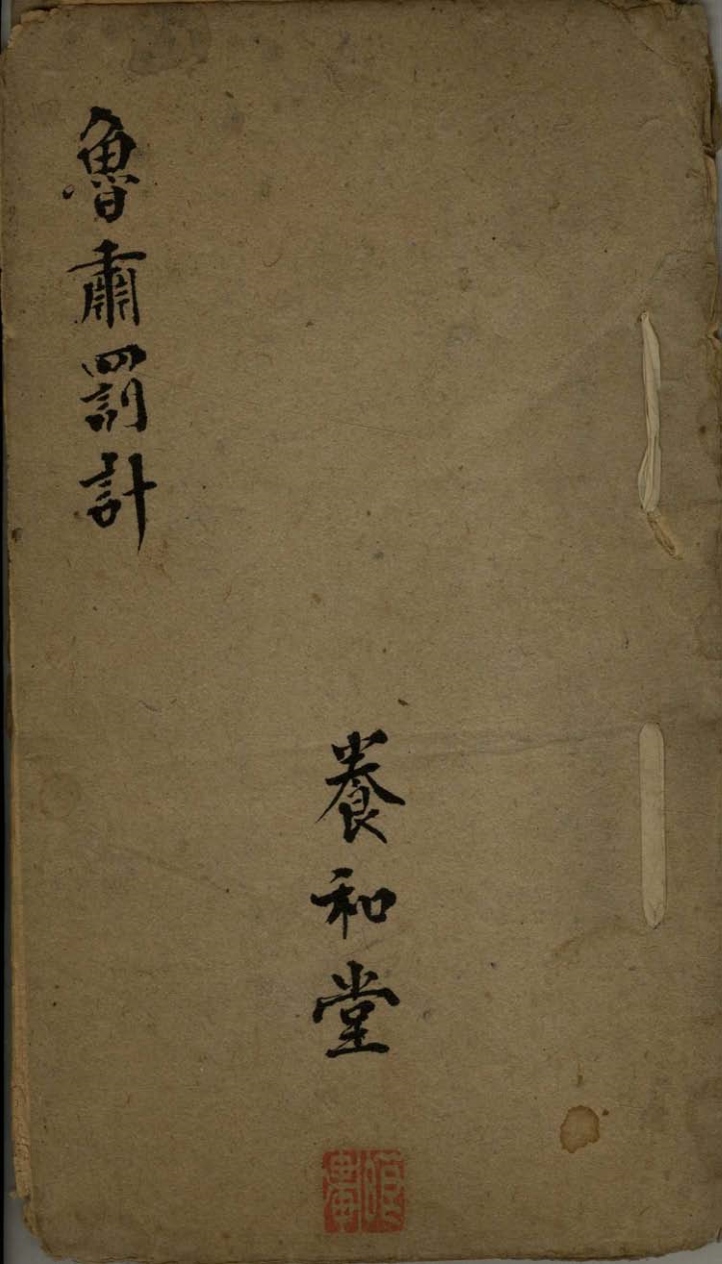 魯肅罰計
養和堂